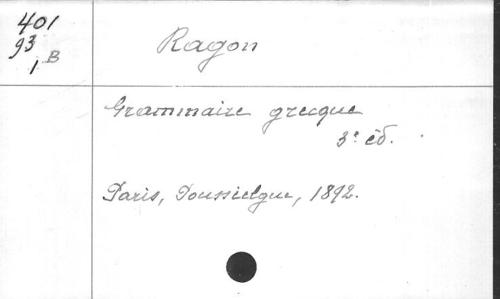 401
93
1 B
Ragon
Grammaire grecque
3e éd.
Paris, Poussielgue, 1892.